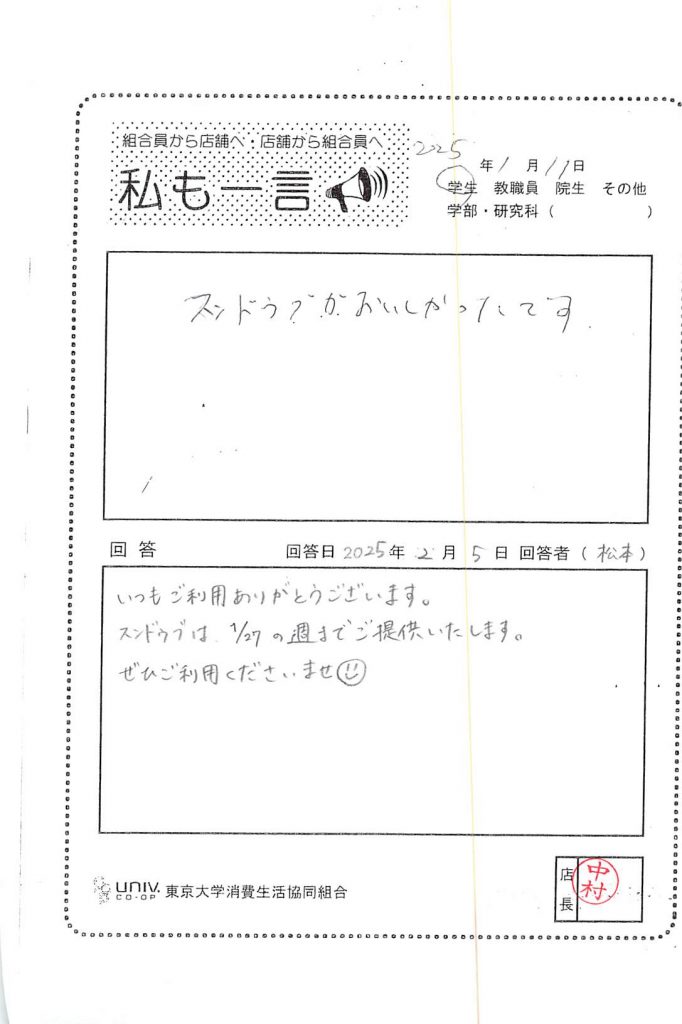 組合員から店舗へ・店舗から組合員へ
私も一言
2025 年 1 月 11 日
学生 教職員 院生 その他
学部・研究科（ ）
スンドゥブがおいしかったです
回答 回答日 2025 年 2 月 5 日 回答者（松本）
いつもご利用ありがとうございます。
スンドゥブは、1/27の週までご提供いたします。
ぜひご利用くださいませ
UNIV. CO-OP 東京大学消費生活協同組合
店長 中村